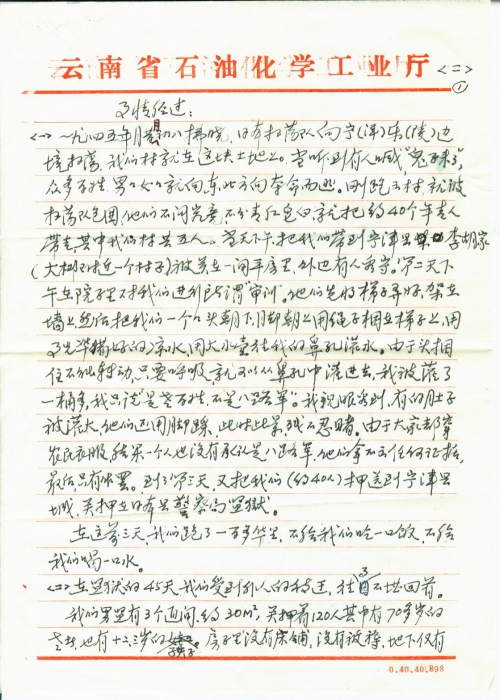 云南省石油化学工业厅
<二>
①
事情经过:
<一> 一九四五年月初八拂晓,日本扫荡队向宁(津)乐(陵)边
境扫荡,我们村就在这块土地上。当听到有人喊“鬼子来了”,
众多百姓,男男女女就向东北方向奔命而逃。刚跑出村就被
扫荡队包围,他们不问究竟,不分青红皂白就把约40个年青人
带走,其中我们村共五人。当天下午,把我们带到宁津县李胡家
(大柳附近一个村子)被关在一间平房里,外边有人看守。第二天下
午在院子里对我们进行所谓“审训”。他们先将梯子弄好,架在
墙上然后把我们一个个头朝下,脚朝上用绳子捆在梯子上,用
事先准备好的凉水,用大水壶往我的鼻孔灌水。由于头捆
住不能转动,只要呼吸就可以从鼻孔中灌进去,我被灌了
一桶多,我只说是老百姓,不是八路军。我亲眼看到,有的肚子
被灌大,他们还用脚踩,此时此景,残不忍睹。由于大家都穿
农民衣服,结果一个人也没有承认是八路军,他们拿不出任何证据,
最后只有作罢。到了第三天,又把我们(约40人)押送到宁津县
城,关押在日本县警察局监狱。
在这前三天,我们跑了一百多华里,不给我们吃一口饭,不给
我们喝一口水。
<二> 在监狱的45天,我们受到非人的待遇,往事不堪回首。
我们男监有3个直间,约30m²,关押着120人其中有70多岁的
老者,也有十二、三岁的孩子。房子里没有床铺,没有被褥,地下仅有
0.40.40.898